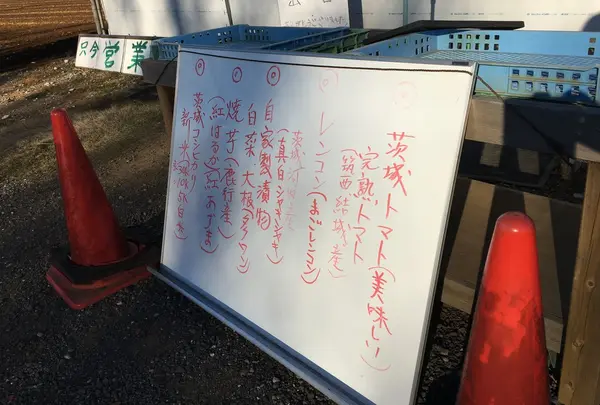 只今営業
◎
茨城トマト(美味しい)
完熟トマト
(筑西結城産)
◎
レンコン(まごレンコン)
茨城
(真白シャキシャキ)
◎
自家製漬物
白菜 大根(タクワン)
◎
焼芋(鹿行産)
(紅はるか)(紅あずま)
◎
茨城コシヒカリ
新米 10kg 白米